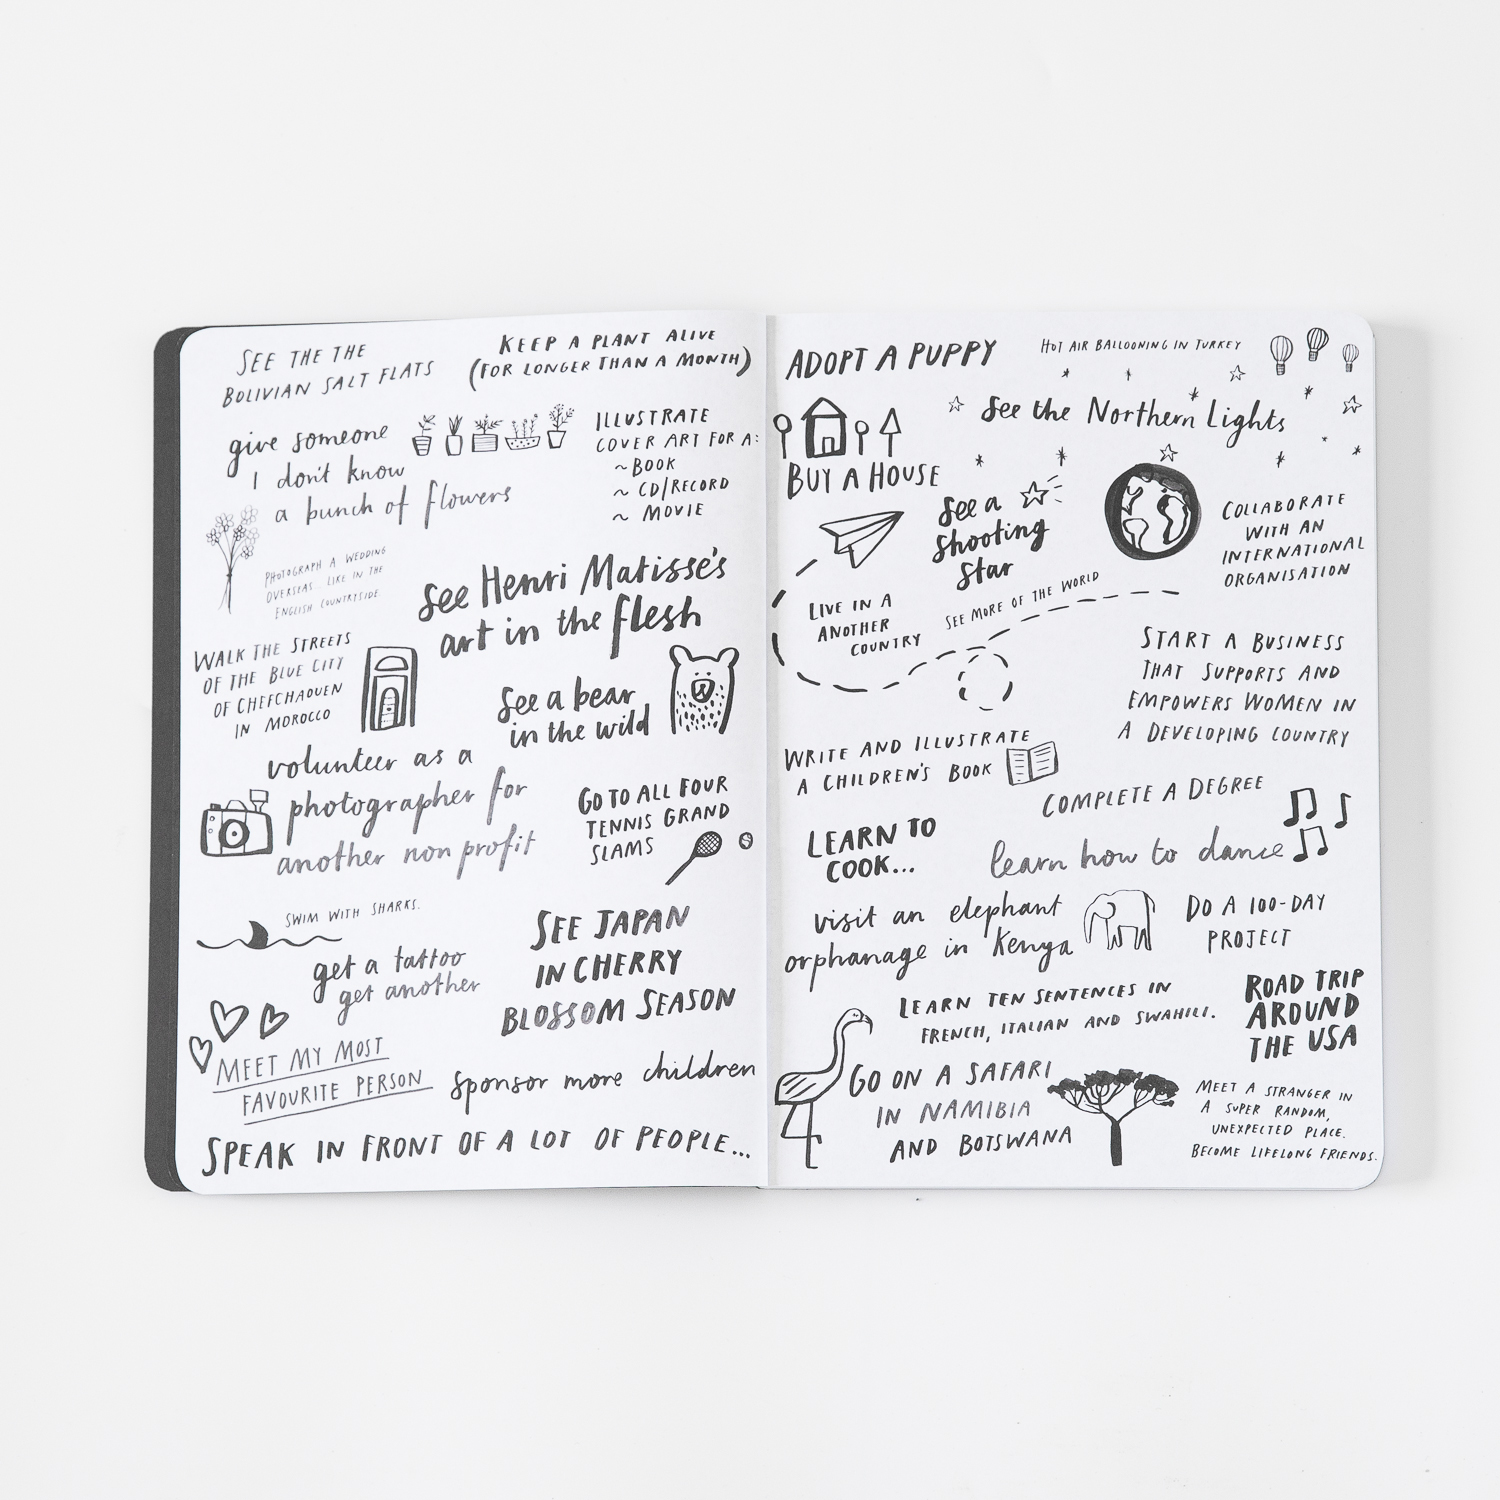 SEE THE THE
BOLIVIAN SALT FLATS
KEEP A PLANT ALIVE
(FOR LONGER THAN A MONTH)
give someone
I don't know
a bunch of flowers
ILLUSTRATE
COVER ART FOR A:
~ BOOK
~ CD/RECORD
~ MOVIE
PHOTOGRAPH A WEDDING
OVERSEAS... LIKE IN THE
ENGLISH COUNTRYSIDE
See Henri Matisse's
art in the flesh
WALK THE STREETS
OF THE BLUE CITY
OF CHEFCHAOUEN
IN MOROCCO
See a bear
in the wild
volunteer as a
photographer for
another non profit
GO TO ALL FOUR
TENNIS GRAND
SLAMS
SWIM WITH SHARKS.
get a tattoo
get another
SEE JAPAN
IN CHERRY
BLOSSOM SEASON
MEET MY MOST
FAVOURITE PERSON
Sponsor more children
SPEAK IN FRONT OF A LOT OF PEOPLE...
ADOPT A PUPPY
HOT AIR BALLOONING IN TURKEY
See the Northern Lights
BUY A HOUSE
See a
Shooting
Star
COLLABORATE
WITH AN
INTERNATIONAL
ORGANISATION
LIVE IN A
ANOTHER
COUNTRY
SEE MORE OF THE WORLD
START A BUSINESS
THAT SUPPORTS AND
EMPOWERS WOMEN IN
A DEVELOPING COUNTRY
WRITE AND ILLUSTRATE
A CHILDREN'S BOOK
COMPLETE A DEGREE
LEARN TO
COOK...
learn how to dance
visit an elephant
orphanage in Kenya
DO A 100-DAY
PROJECT
LEARN TEN SENTENCES IN
FRENCH, ITALIAN AND SWAHILI.
ROAD TRIP
AROUND
THE USA
GO ON A SAFARI
IN NAMIBIA
AND BOTSWANA
MEET A STRANGER IN
A SUPER RANDOM,
UNEXPECTED PLACE.
BECOME LIFELONG FRIENDS.